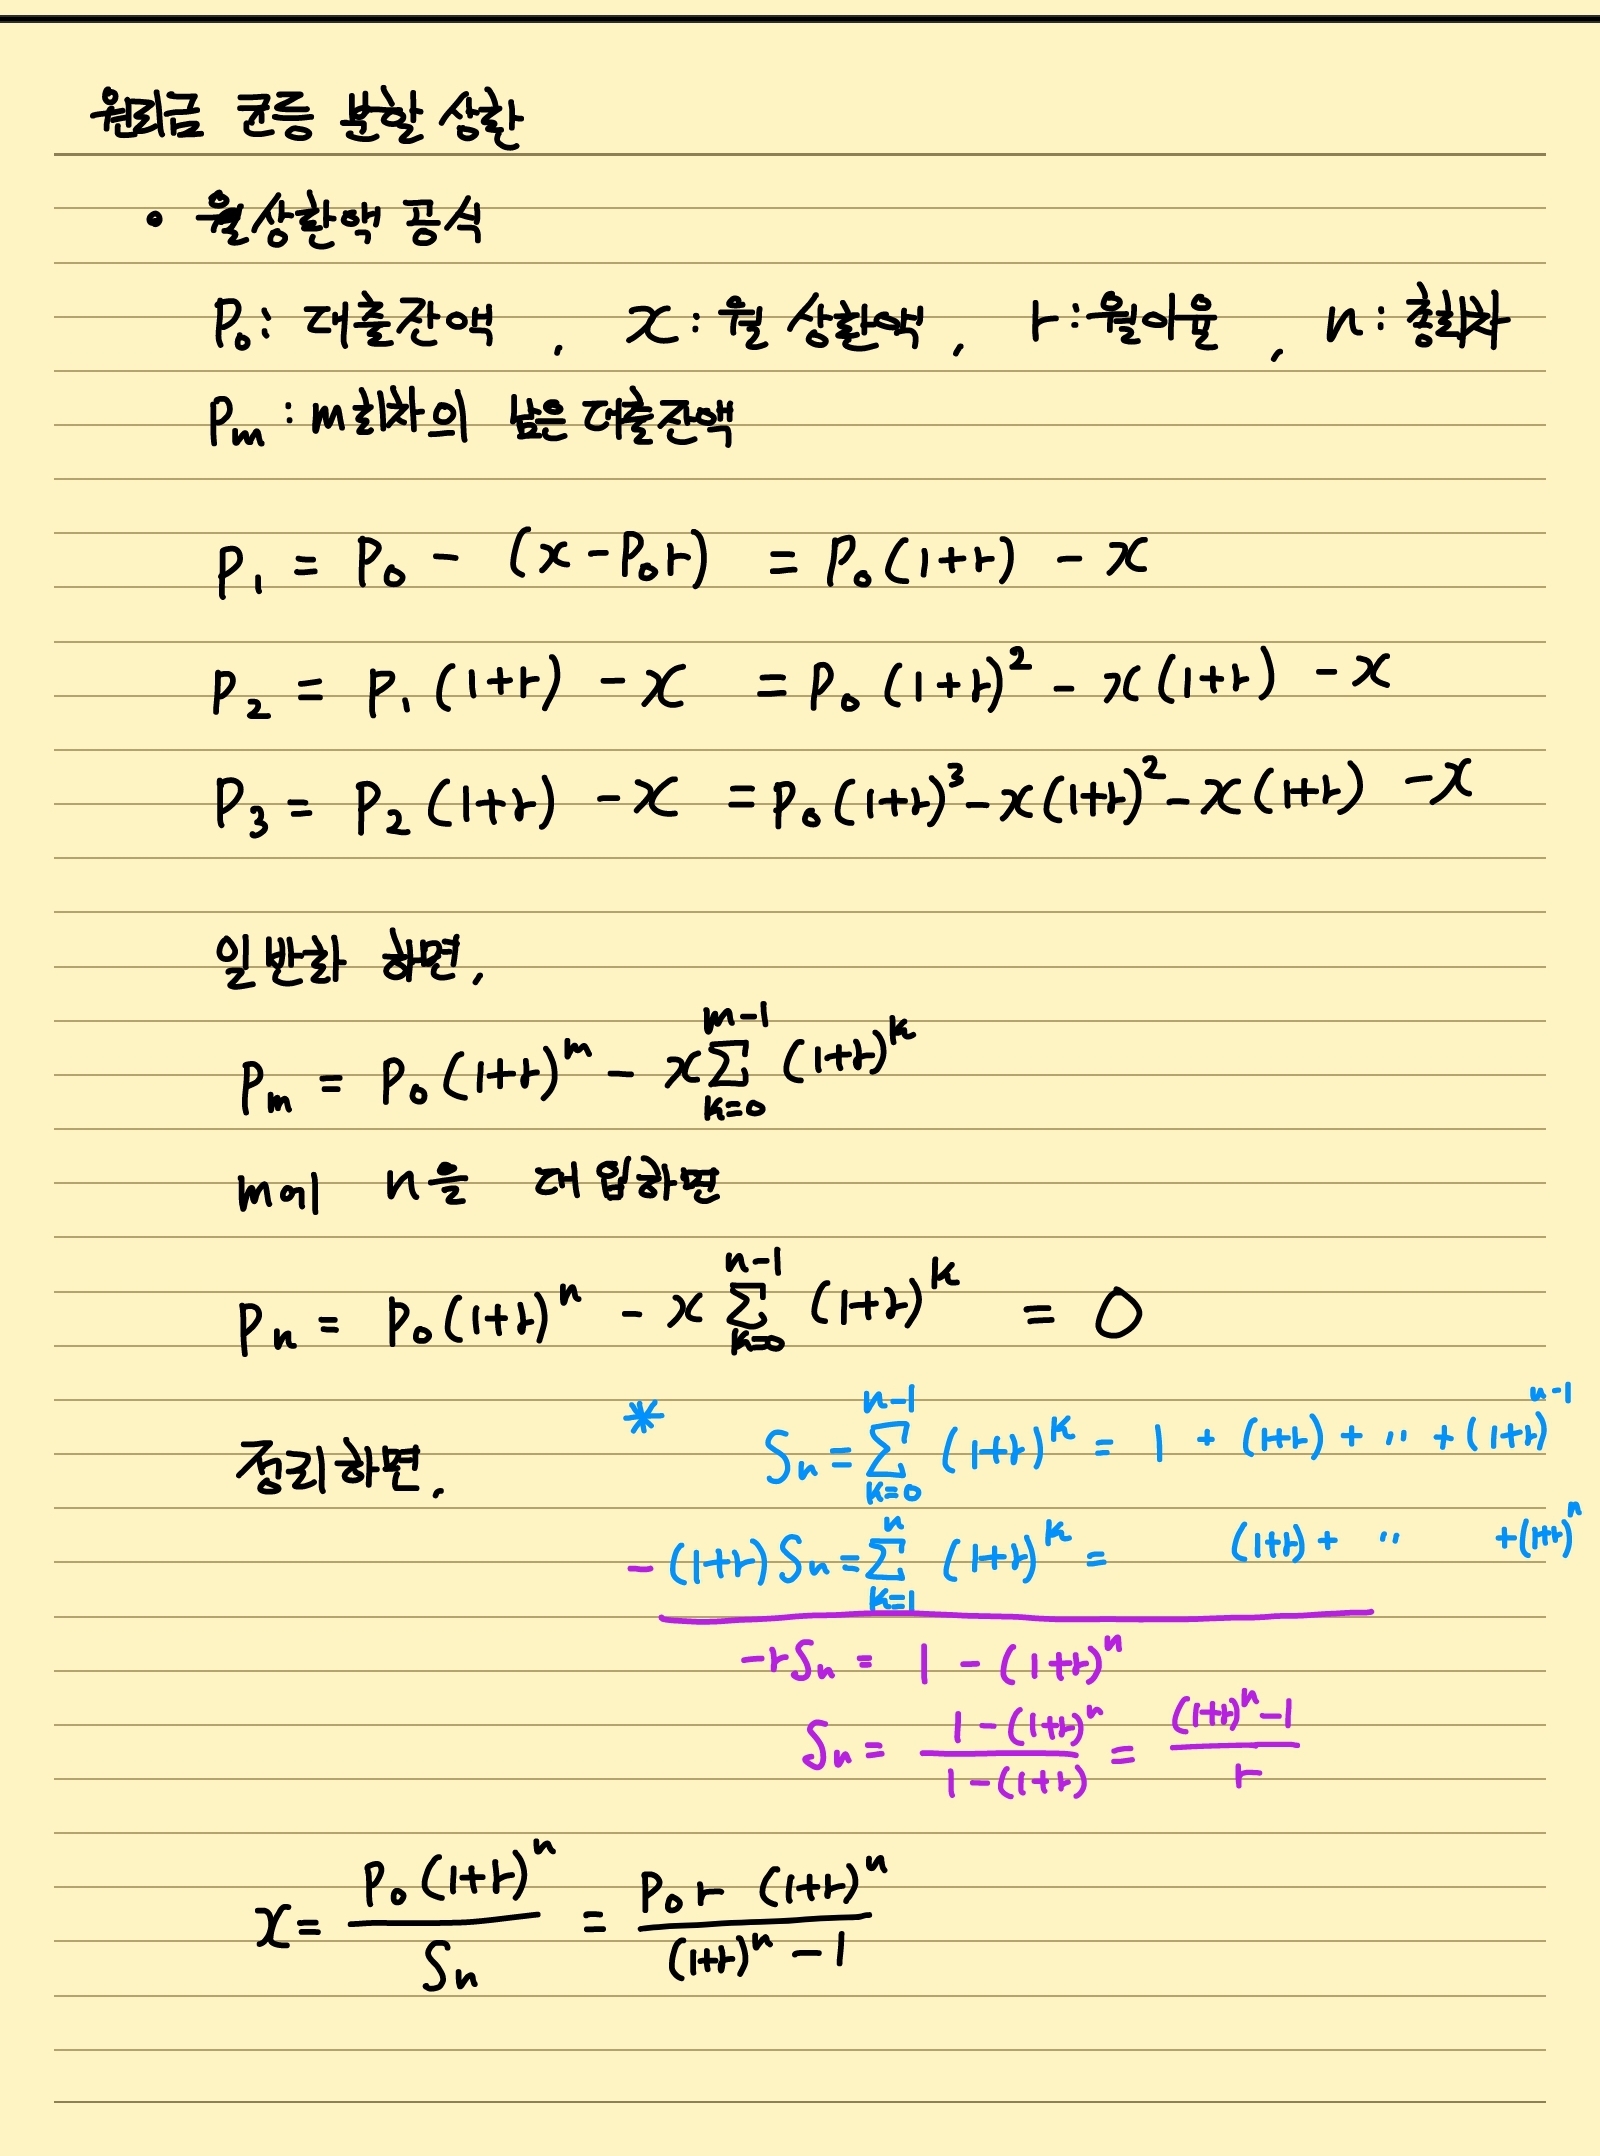 원리금 균등 분할 상환
• 월상환액 공식
P₀: 대출잔액 , x: 월 상환액 , r: 월이율 , n: 총회차
Pₘ : m회차의 남은 대출잔액
P₁ = P₀ - (x - P₀r) = P₀(1+r) - x
P₂ = P₁(1+r) - x = P₀(1+r)² - x(1+r) - x
P₃ = P₂(1+r) - x = P₀(1+r)³ - x(1+r)² - x(1+r) - x
일반화 하면,
Pₘ = P₀(1+r)^m - x∑_{k=0}^{m-1} (1+r)^k
m에 n을 대입하면
Pₙ = P₀(1+r)^n - x∑_{k=0}^{n-1} (1+r)^k = 0
정리하면,
* Sₙ = ∑_{k=0}^{n-1} (1+r)^k = 1 + (1+r) + ‥ + (1+r)^{n-1}
- (1+r)Sₙ = ∑_{k=1}^{n} (1+r)^k = (1+r) + ‥ + (1+r)^n
-rSₙ = 1 - (1+r)^n
Sₙ = \frac{1-(1+r)^n}{1-(1+r)} = \frac{(1+r)^n-1}{r}
x = \frac{P₀(1+r)^n}{Sₙ} = \frac{P₀r(1+r)^n}{(1+r)^n-1}